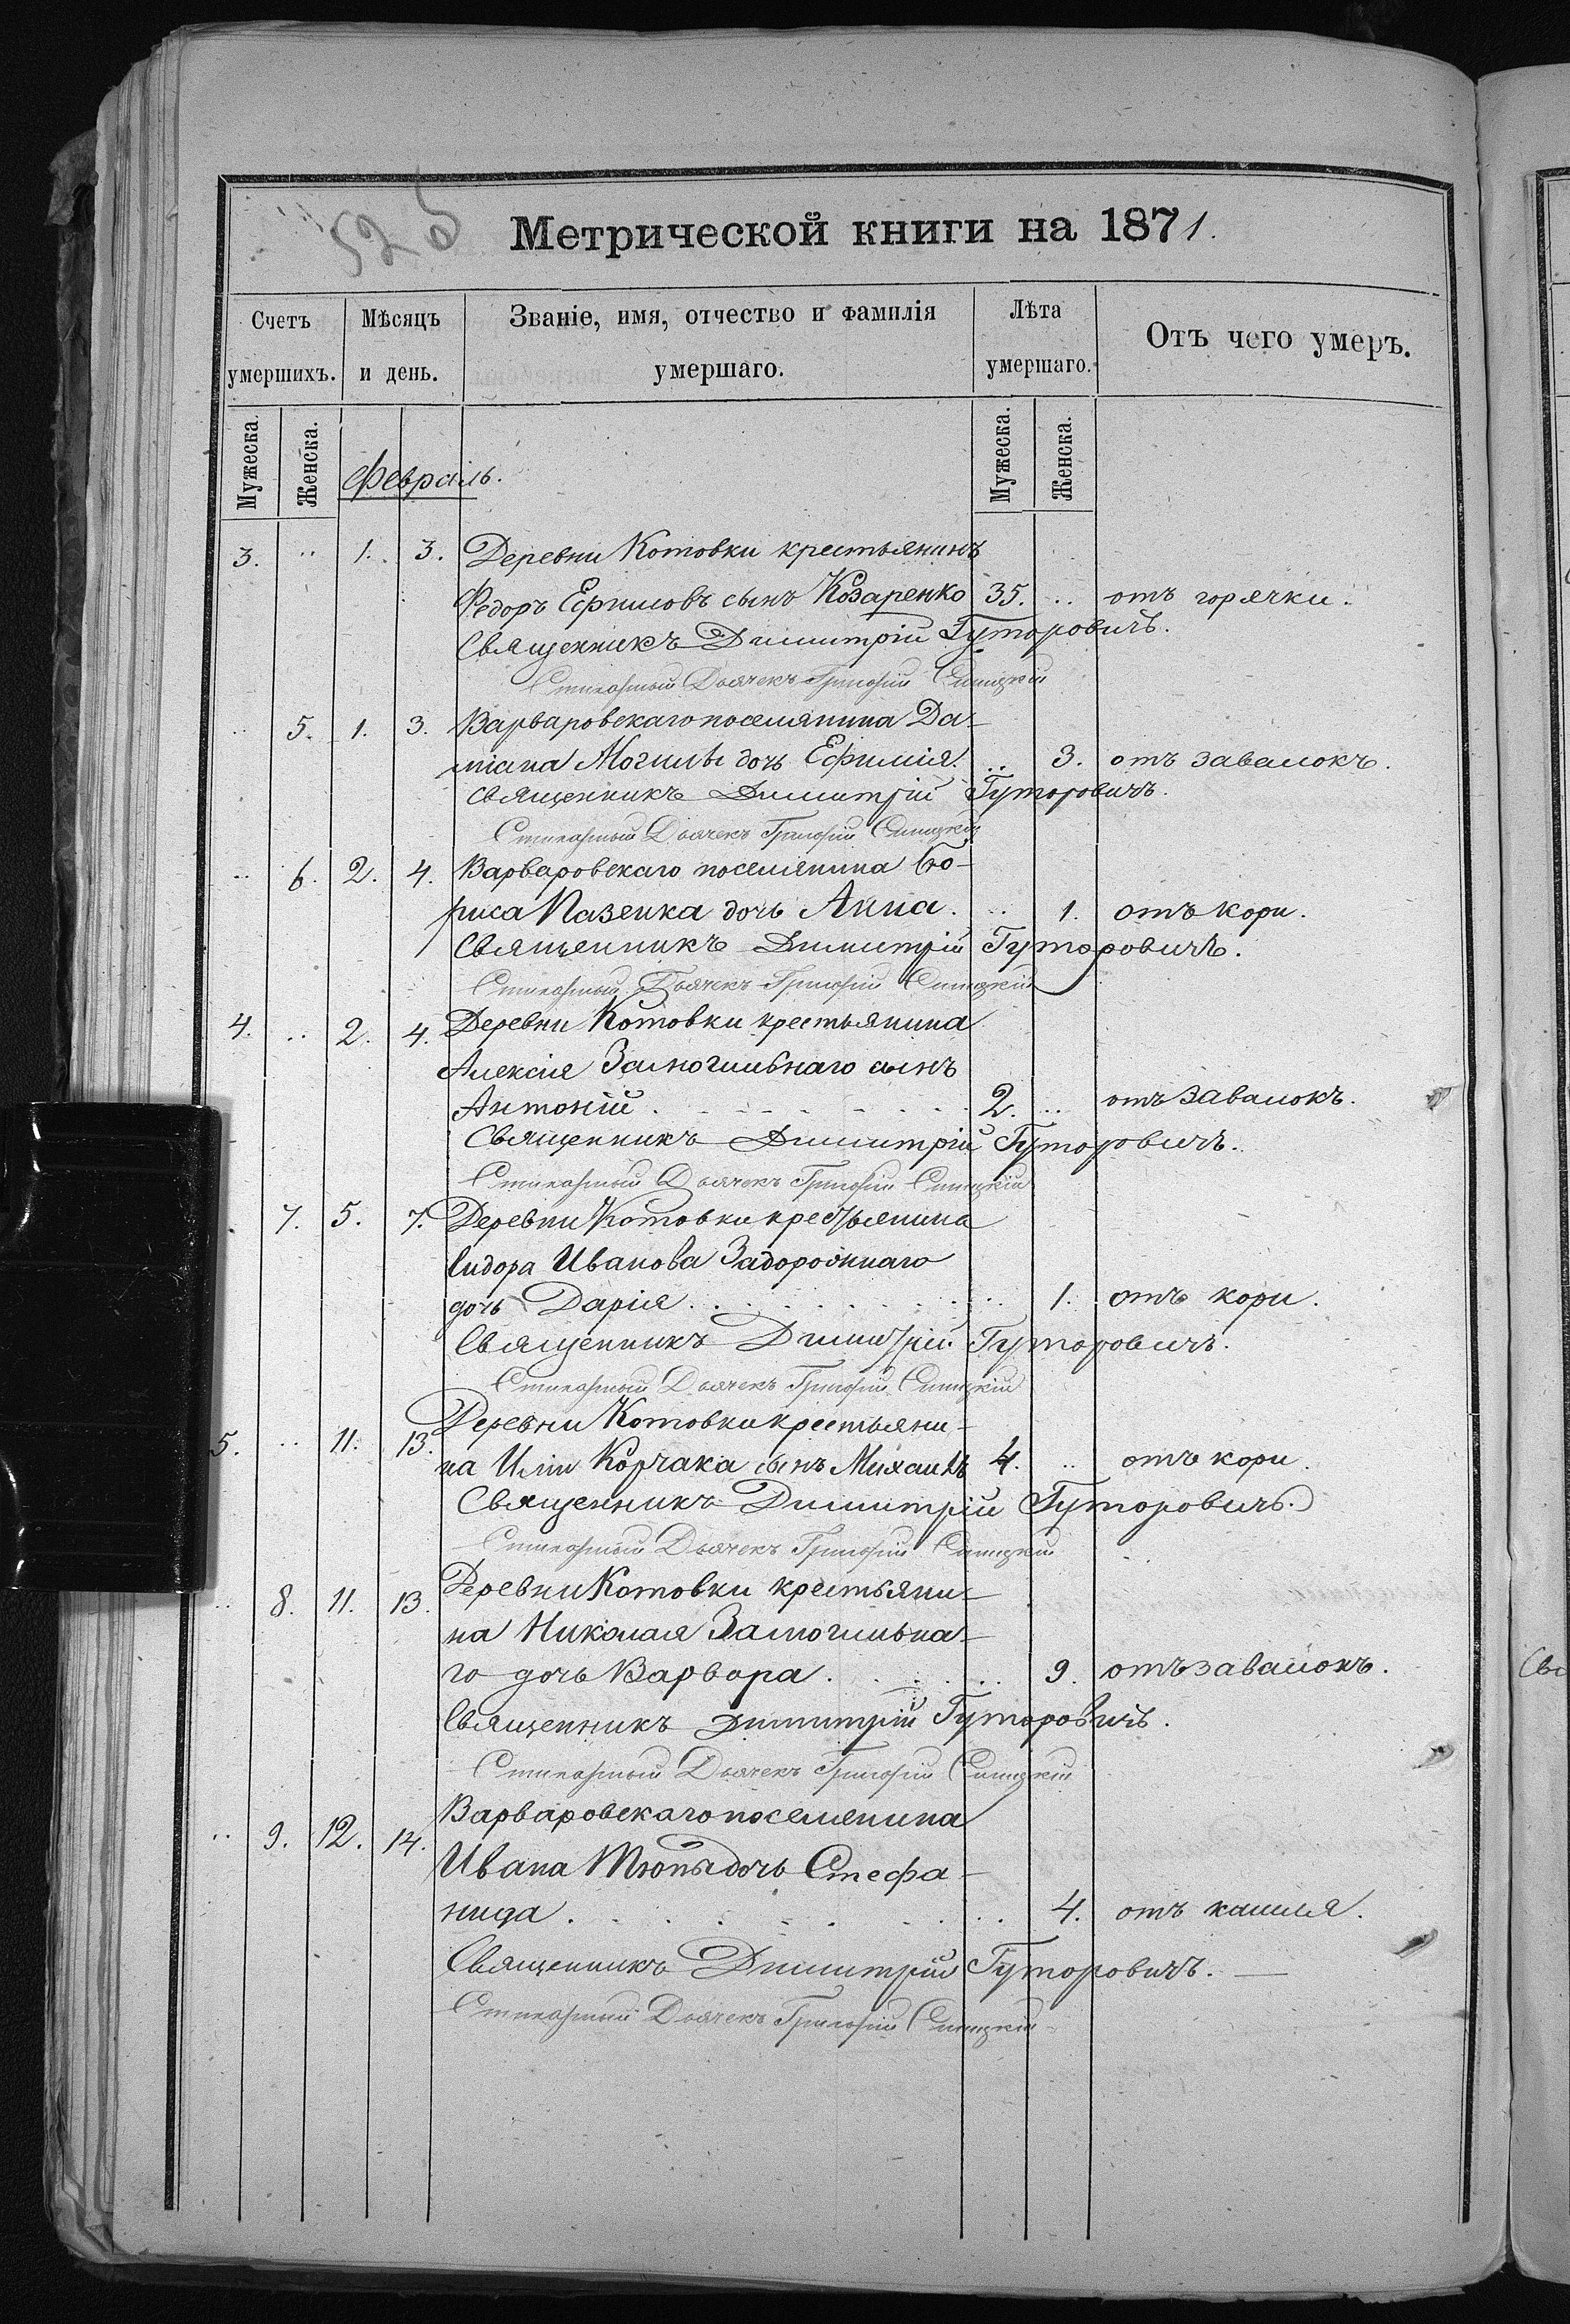 525
Метрической книги на 1871.
Счетъ умершихъ.
Мѣсяцъ и день.
Званіе, имя, отчество и фамилія умершаго.
Лѣта умершаго.
Отъ чего умеръ.
Мужеска. Женска. Мужеска. Женска.
Февраль.
3. .. 1. 3. Деревни Котовки крестьянинъ
Федоръ Ефимовъ сынъ Козаренко 35. .. отъ горячки.
Священникъ Димитрій Гуторовичъ.
Стихарный Дьячекъ Григорій
.. 5. 1. 3. Варваровскаго поселянина Да-
міана Могилы дочь Ефимія. .. 3. отъ завалокъ.
Священникъ Димитрій Гуторовичъ.
Стихарный Дьячекъ Григорій
.. 6. 2. 4. Варваровскаго поселянина Бо-
риса Пазенка дочь Анна. .. 1. отъ кори.
Священникъ Димитрій Гуторовичъ.
Стихарный Дьячекъ Григорій
4. .. 2. 4. Деревни Котовки крестьянина
Алексія Замогильнаго сынъ
Антоній. 2. .. отъ завалокъ.
Священникъ Димитрій Гуторовичъ.
Стихарный Дьячекъ Григорій
7. 5. 7. Деревни Котовки крестьянина
Сидора Иванова Задорожнаго
дочь Дарія. .. 1. отъ кори.
Священникъ Димитрій Гуторовичъ.
Стихарный Дьячекъ Григорій
5. .. 11. 13. Деревни Котовки крестьяни-
на Иліи Корчака сынъ Михаилъ 4. .. отъ кори.
Священникъ Димитрій Гуторовичъ.
Стихарный Дьячекъ Григорій
.. 8. 11. 13. Деревни Котовки крестьяни-
на Николая Замогильна-
го дочь Варвара. .. 9. отъ завалокъ.
Священникъ Димитрій Гуторовичъ.
Стихарный Дьячекъ Григорій
.. 9. 12. 14. Варваровскаго поселянина
Ивана Тюпы дочь Стефа-
нида. .. 4. отъ кашля.
Священникъ Димитрій Гуторовичъ.
Стихарный Дьячекъ Григорій